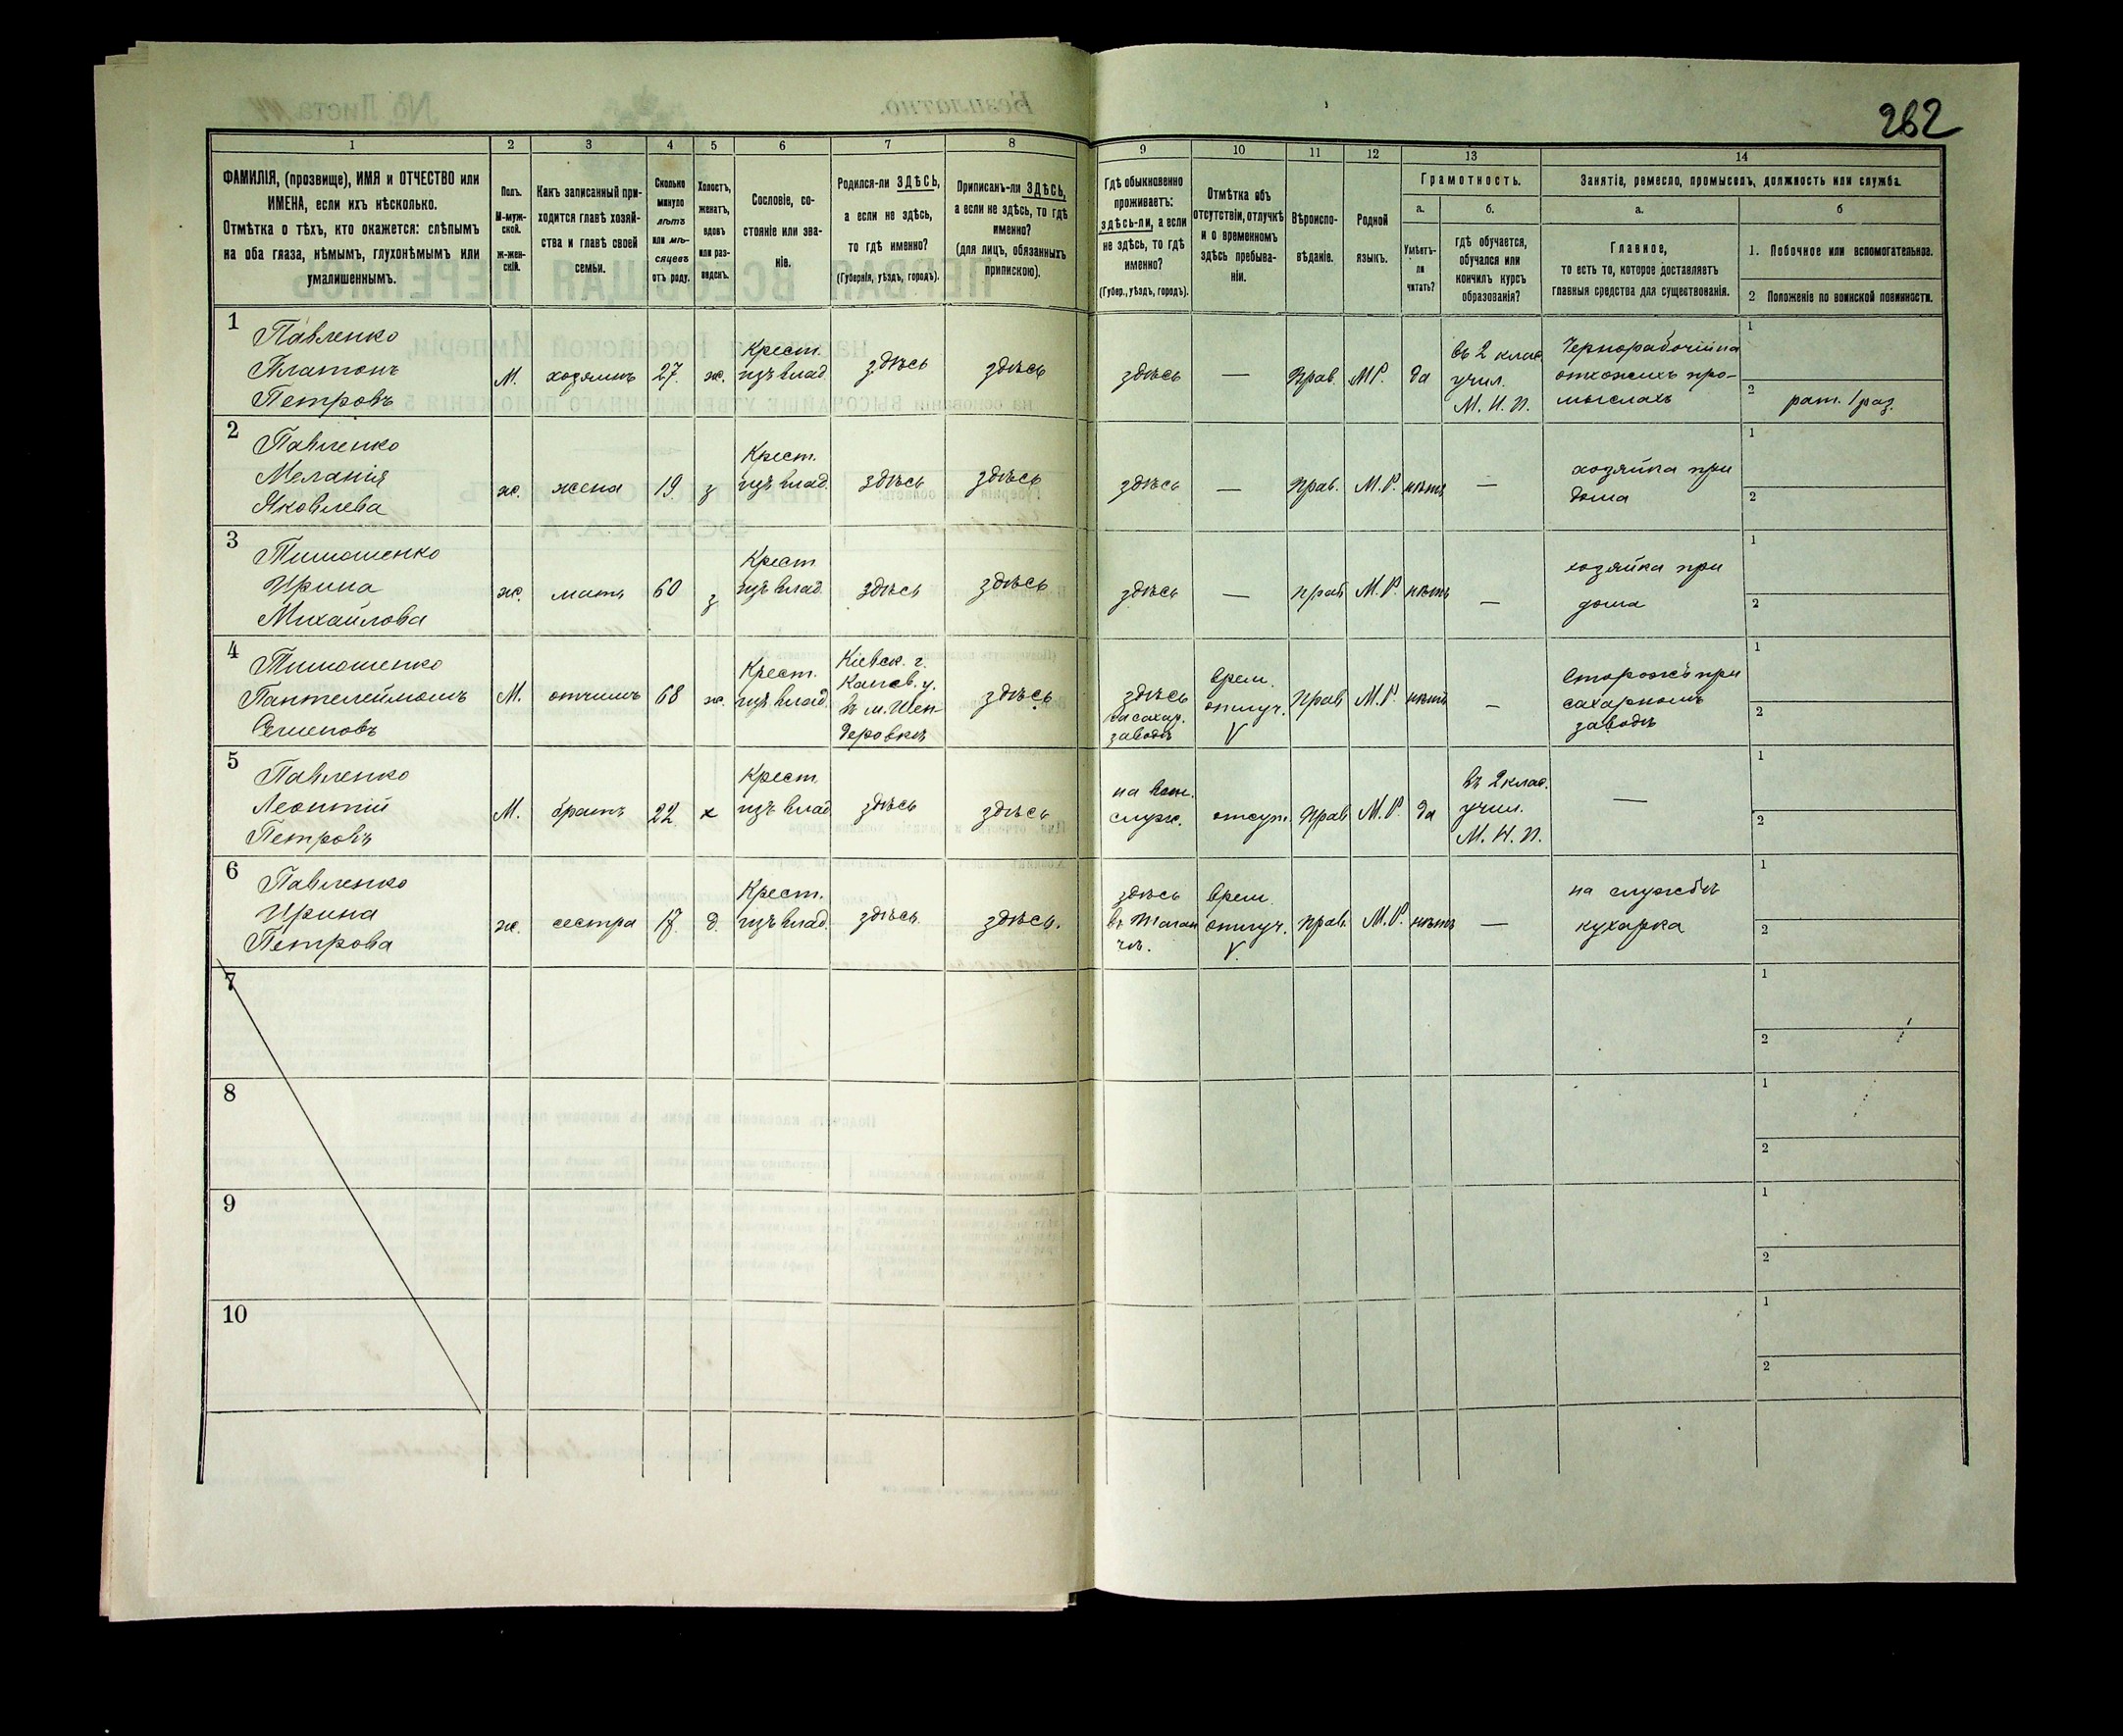 262
1
2
3
4
5
6
7
8
9
10
11
12
13
14
ФАМИЛІЯ, (прозвище), ИМЯ и ОТЧЕСТВО или
ИМЕНА, если ихъ нѣсколько.
Отмѣтка о тѣхъ, кто окажется: слѣпымъ
на оба глаза, нѣмымъ, глухонѣмымъ или
умалишеннымъ.
Полъ.
М-муж-
ской.
Ж-жен-
скій.
Какъ записанный при-
ходится главѣ хозяй-
ства и главѣ своей
семьи.
Сколько
минуло
лѣтъ
или мѣ-
сяцевъ
отъ роду.
Холостъ,
женатъ,
вдовъ
или раз-
веденъ.
Сословіе, со-
стояніе или зва-
ніе.
Родился-ли ЗДѢСЬ,
а если не здѣсь,
то гдѣ именно?
(Губернія, уѣздъ, городъ).
Приписанъ-ли ЗДѢСЬ,
а если не здѣсь, то гдѣ
именно?
(для лицъ, обязанныхъ
припискою).
Гдѣ обыкновенно
проживаетъ:
здѣсь-ли, а если
не здѣсь, то гдѣ
именно?
(Губер., уѣздъ, городъ).
Отмѣтка объ
отсутствіи, отлучкѣ
и о временномъ
здѣсь пребыва-
ніи.
Вѣроиспо-
вѣданіе.
Родной
языкъ.
Грамотность.
а.
Умѣетъ-
ли
читать?
б.
гдѣ обучается,
обучался или
кончилъ курсъ
образованія?
Занятіе, ремесло, промыселъ, должность или служба.
а.
Главное,
то есть то, которое доставляетъ
главныя средства для существованія.
б
1. Побочное или вспомогательное.
2 Положеніе по воинской повинности.
1
Павленко
Платонъ
Петровъ
М.
хозяинъ
27.
ж.
Крест.
изъ влад.
здѣсь
здѣсь
здѣсь
—
Прав.
М Р.
да
въ 2 клас.
учил.
М. Н. П.
Чернорабочій на
отхожихъ про-
мыслахъ
1
2
рат. 1 раз.
2
Павленко
Меланія
Яковлева
ж.
жена
19.
з
Крест.
изъ влад.
здѣсь
здѣсь
здѣсь
—
Прав.
М. Р.
нѣтъ
—
хозяйка при
дома
1
2
3
Тимошенко
Ирина
Михайлова
ж.
мать
60
з
Крест
изъ влад.
здѣсь
здѣсь
здѣсь
—
прав
М. Р.
нѣтъ
—
хозяйка при
дома
1
2
4
Тимошенко
Пантелеймонъ
Семеновъ
М.
отчимъ
68
ж.
Крест.
изъ влад.
Кіевск. г.
Канев. у.
въ м. Шен-
деровкѣ
здѣсь
здѣсь
на сахар.
заводѣ
врем.
отлуч.
V
прав
М. Р
нѣтъ
—
Сторожъ при
сахарномъ
заводѣ
1
2
5
Павленко
Леонтій
Петровъ
М.
братъ
22.
х
Крест
изъ влад
здѣсь
здѣсь
на воен.
служ.
отсут.
прав
М. Р.
да
въ 2 клас.
учил.
М. Н. П.
—
1
2
6
Павленко
Ирина
Петрова
ж.
сестра
17.
д.
Крест.
изъ влад.
здѣсь.
здѣсь.
здѣсь
въ Таган
чѣ.
врем.
отлуч.
V.
прав.
М. Р.
нѣтъ
—
на службѣ
кухарка
1
2
7
1
2
8
1
2
9
1
2
10
1
2